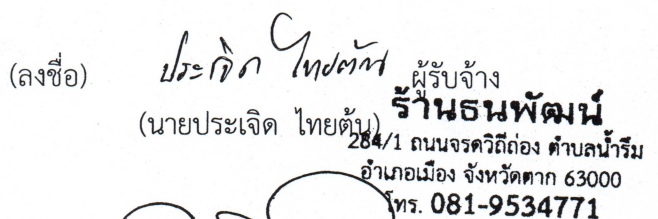 (ลงชื่อ) ประเจิด ไทยต้น ผู้รับจ้าง
(นายประเจิด ไทยต้น)
ร้านธนพัฒน์
284/1 ถนนจรดวิถีถ่อง ตำบลน้ำรึม
อำเภอเมือง จังหวัดตาก 63000
โทร. 081-9534771